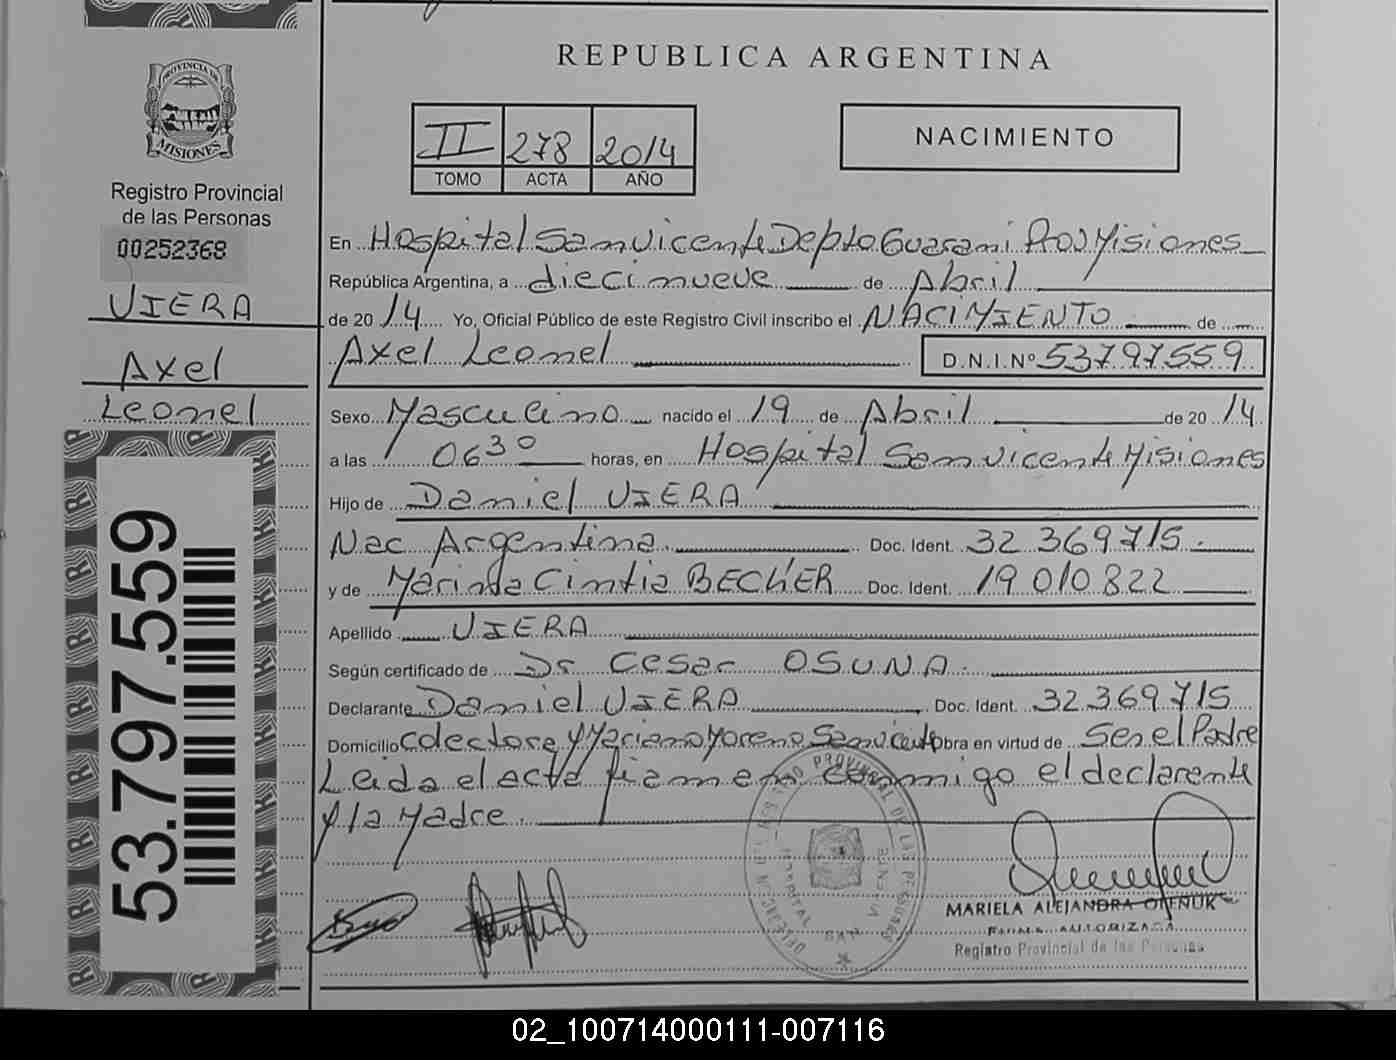 PROVINCIA DE
MISIONES
Registro Provincial
de las Personas
00252368
VIERA
Axel
Leonel
53.797.559
REPUBLICA ARGENTINA
II 278 2014
TOMO ACTA AÑO
NACIMIENTO
En Hospital San Vicente Depto Guarani Prov Misiones
República Argentina, a diecinueve de Abril
de 20 14 Yo, Oficial Público de este Registro Civil inscribo el NACIMIENTO de
Axel Leonel D.N.I.Nº 53797559
Sexo Masculino nacido el 19 de Abril de 20 14
a las 06 30 horas, en Hospital San Vicente Misiones
Hijo de Daniel VIERA
Nac Argentina Doc. Ident. 32 369 715
y de Cintia Doc. Ident. 19 010 822
Apellido VIERA
Según certificado de Dr Cesar OSUNA
Declarante Daniel VIERA Doc. Ident. 32 369 715
Domicilio colectora y Mariano Moreno San Vicente Obra en virtud de Ser el Padre
Leida el acta firman conmigo el declarante
y la Madre.
MARIELA ALEJANDRA
FIRMA AUTORIZADA
Registro Provincial de las Personas
02_100714000111-007116